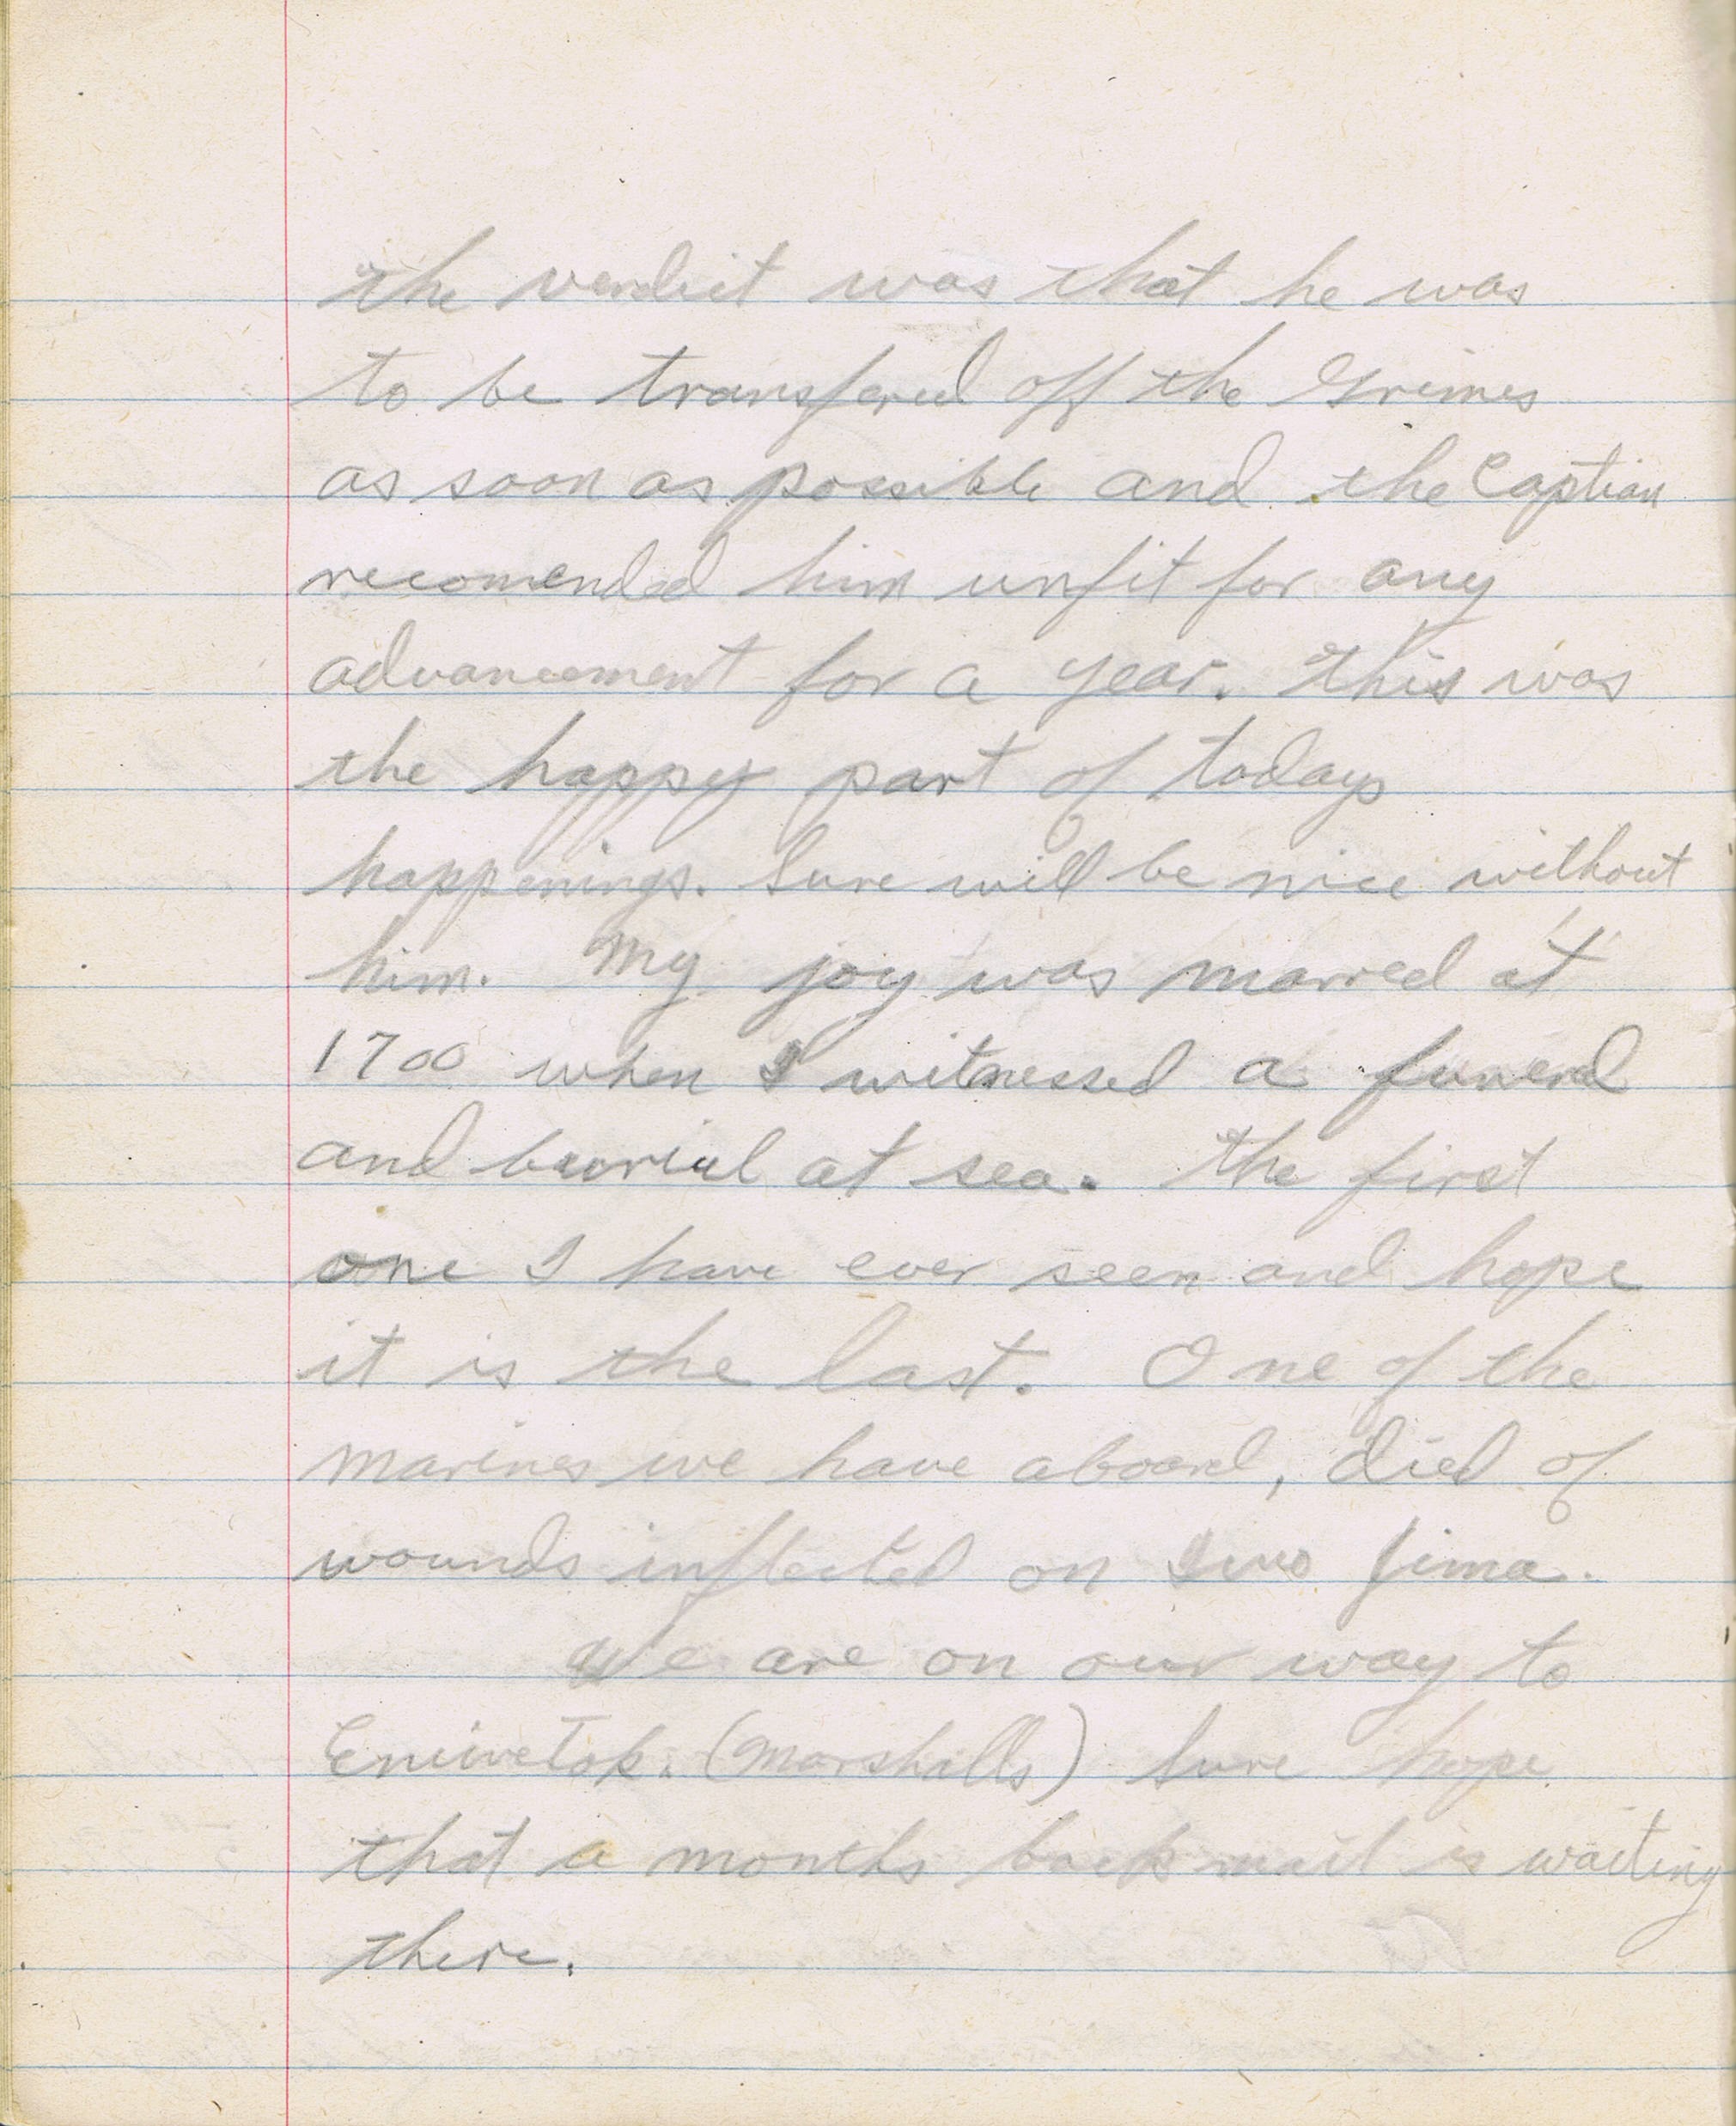 the verdict was that he was
to be transfered off the Grimes
as soon as possible and the Captian
recomended him unfit for any
advancement for a year. This was
the happy part of todays
happenings. Sure will be nice without
him. My joy was marred at
1700 when I witnessed a funeral
and burial at sea. The first
one I have ever seen and hope
it is the last. One of the
marines we have aboard, died of
wounds inflected on Iwo Jima.
We are on our way to
Eniwetok. (Marshalls) Sure hope
that a months back mail is waiting
there.